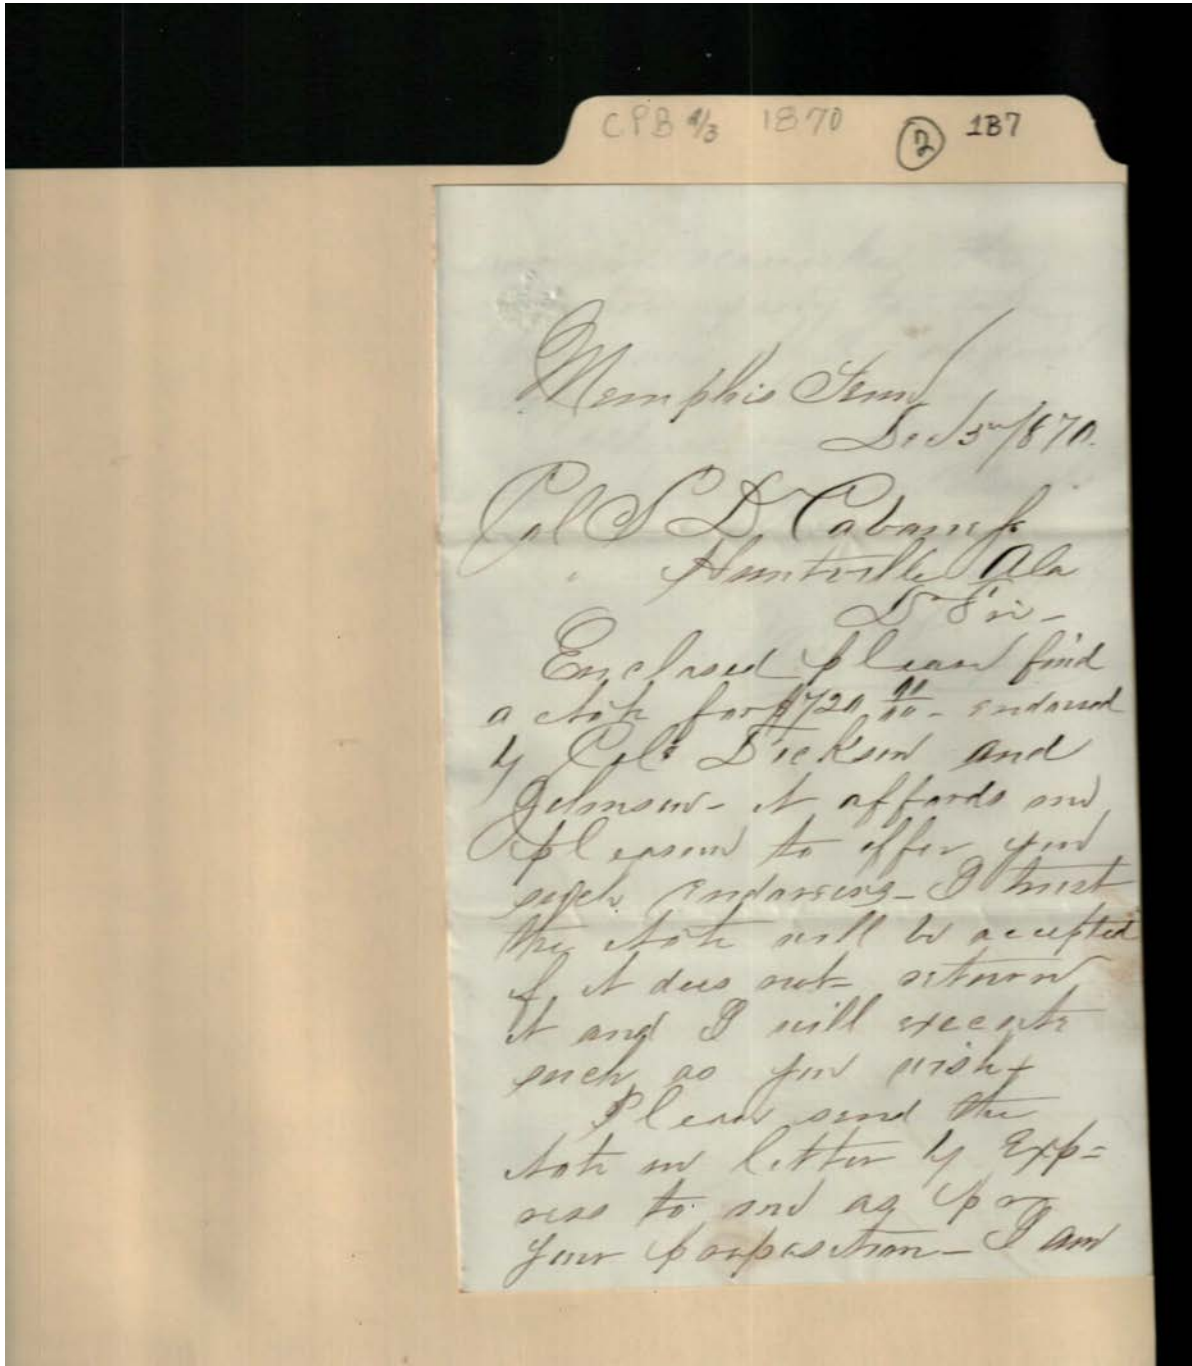 CPB 4/3 1870 2 1B7
Memphis Tenn
Dec 3rd/870.
Col S D Cabaniss
Huntsville Ala
Dr Sir-
Enclosed please find
a Note for $720 00/00 - endorsed
by Cols Dickson and
Johnson - it affords me
pleasure to offer you
such endorsers - I trust
the Note will be accepted
if it does not - return
it and I will execute
such as you wish -
Please send the
Note in letter by Exp=
ress to me as pr
your proposition - I am